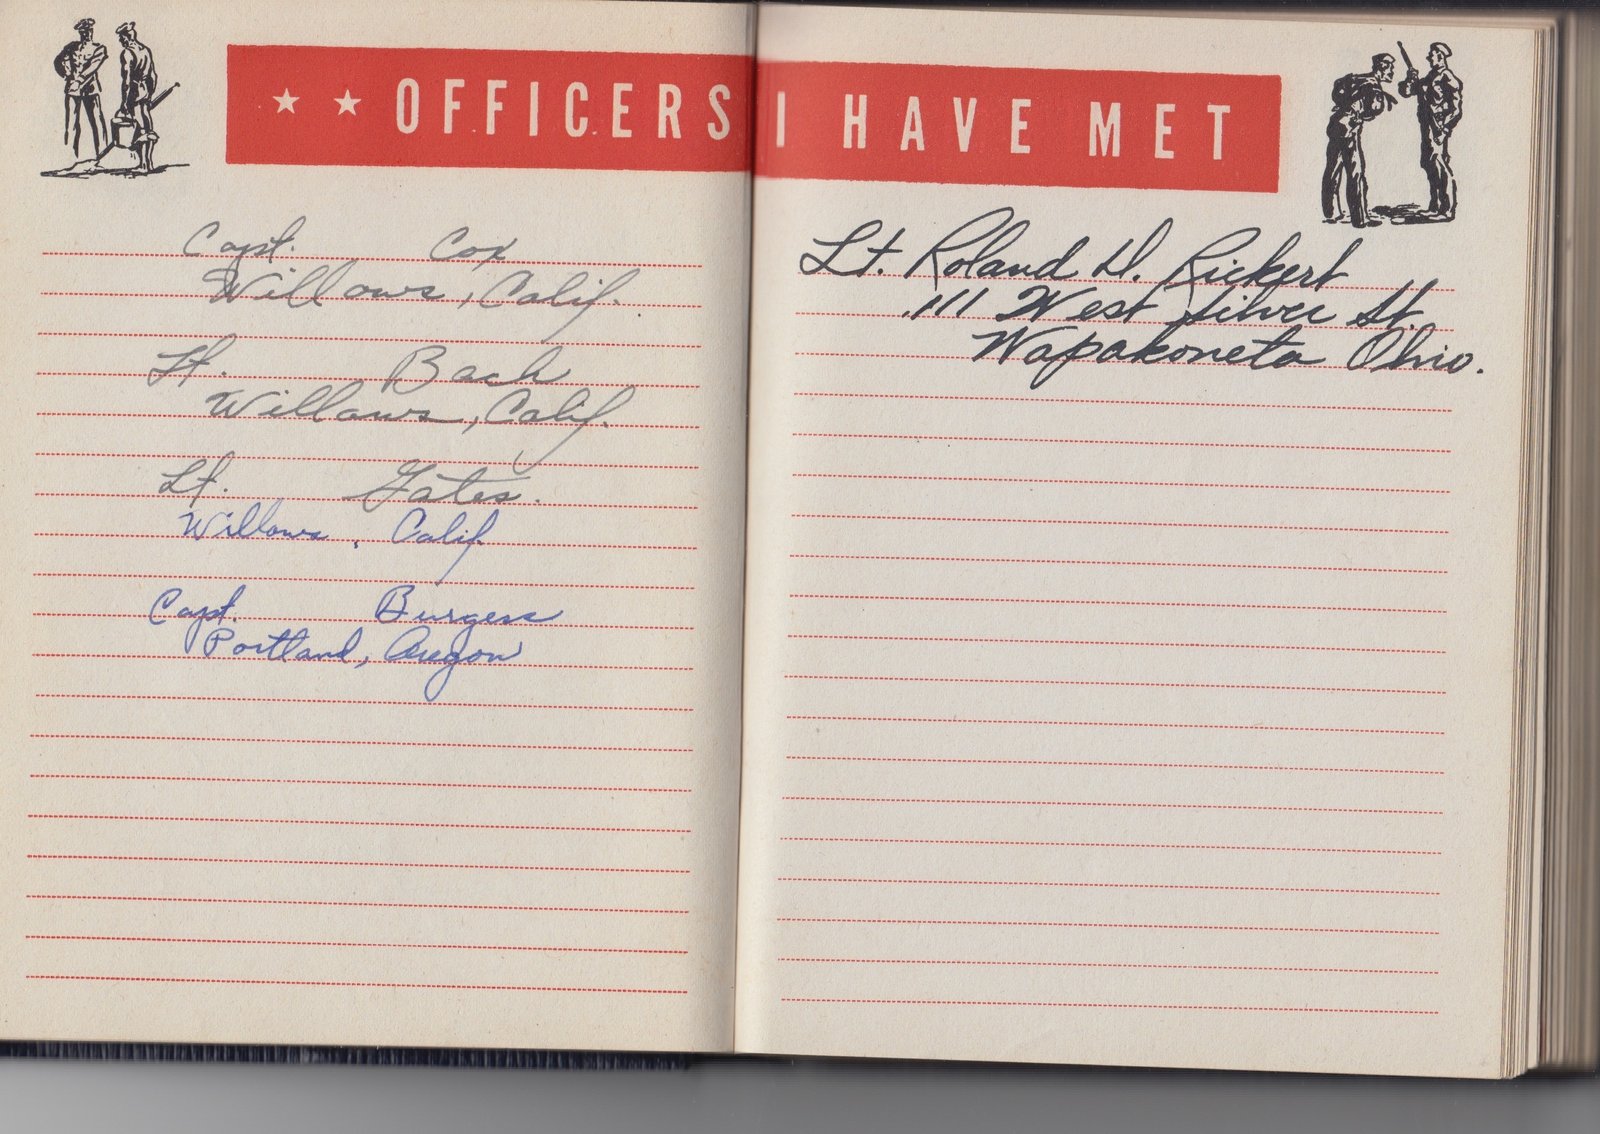 ★ ★ OFFICERS I HAVE MET
Capt. Cox
Willows, Calif.
Lt. Bach
Willows, Calif.
Lt. Gates.
Willows, Calif.
Capt. Burgess
Portland, Oregon
Lt. Roland D. Rickert
111 West Silver St.
Wapakoneta Ohio.